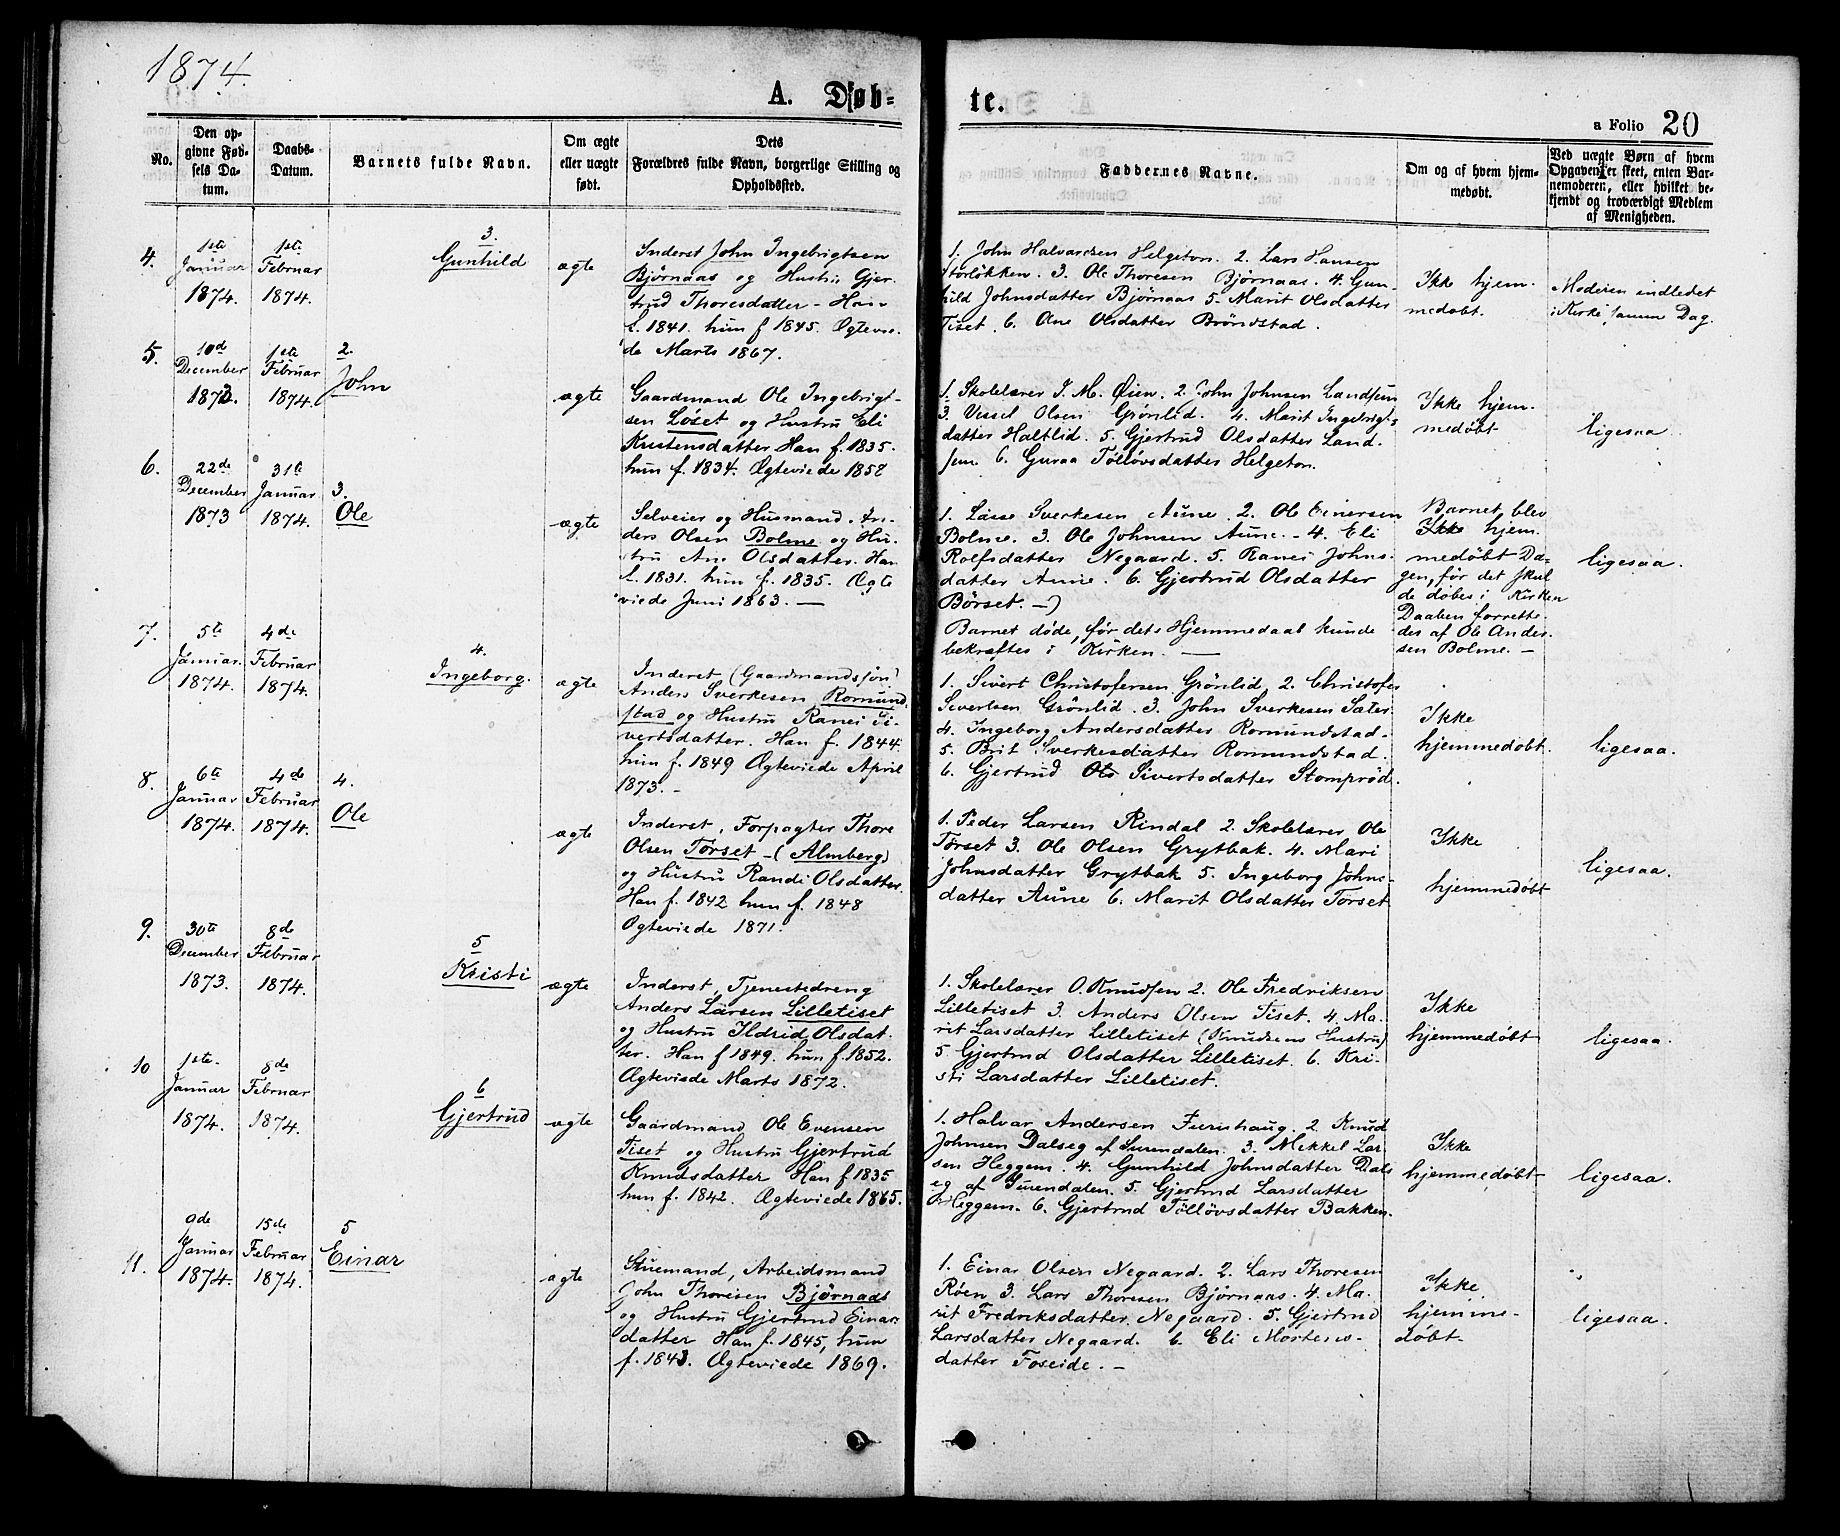 1874.
A. Døb=
te.
a Folio 20
No.
Den op-
givne Fød-
sels Da-
tum.
Daabs-
Datum.
Barnets fulde Navn.
Om ægte
eller uægte
født.
Dets
Forældres fulde Navn, borgerlige Stilling og
Opholdssted.
Faddernes Navne.
Om og af hvem hjem-
medøbt.
Ved uægte Børn af hvem
Opgaven er skeet, enten Bar-
nemoderen, eller hvilket be-
kjendt og troværdigt Medlem
af Menigheden.
4.
1ste
Januar
1874.
1ste
Februar
1874.
3.
Gunhild
ægte
Inderst John Ingebrigtsen
Bjørnaas og Hustru Gjer-
trud Thoresdatter - Han
f. 1841. hun f 1845. Ægtevie-
de Marts 1867.
1. John Halvardsen Helgeton. 2. Lars Hansen
Storløkken. 3. Ole Thoresen Bjørnaas. 4. Gun-
hild Johnsdatter Bjørnaas 5. Marit Olsdatter
Tiset. 6. Ane Olsdatter Brøndstad.
Ikke hjem-
medøbt.
Moderen indledet
i Kirke samm Dag.
5.
10de
December
1873.
1ste
Februar
1874.
2.
John
ægte
Gaardmand Ole Ingebrigt-
sen Løset og Hustru Eli
Kristensdatter Han f. 1835.
hun f. 1834. Ægteviede 1858
1. Skolelærer I. M. Øien. 2. John Johnsen Landsem
3. Olsen Grønlid. 4. Marit Ingebrigts-
datter Haltlid. 5. Gjertrud Olsdatter Land-
sem 6. Guraa Tølløvsdatter Helgeton.
Ikke hjem-
medøbt
ligesaa.
6.
22de
December
1873
31te
Januar
1874.
3.
Ole
ægte
Selveier og Husmand. An-
ders Olsen Bolme og Hu-
stru Ane Olsdatter. Han
f. 1831. hun f. 1835. Ægte
viede Juni 1863. —
1. Lasse Sverkesen Aune. 2. Ole Einersen
Bolme. 3. Ole Johnsen Aune. - 4. Eli
Rolfsdatter Negaard. 5. Ranei Johns-
datter Aune. 6. Gjertrud Olsdatter
Børset. —)
Barnet døde, før dets Hjemmedaab kunde
bekræftes i Kirken. —
Barnet blev
Ikke hjem-
medøbt Da-
gen, før det skul-
de døbes i Kirken
Daaben forrette-
des af Ole Ander-
sen Bolme. —
ligesaa.
7.
5te
Januar.
1874.
4de
Februar
1874.
4.
Ingeborg.
ægte
Inderst (Gaardmandssøn)
Anders Sverkesen Romund-
stad og Hustru Ranei Si-
vertsdatter. Han f. 1844.
hun f. 1849 Ægteviede April
1873. -
1. Sivert Christofersen Grønlid. 2. Christofer
Sivertsen Grønlid. 3. John Sverkesen Sæter.
4. Ingeborg Andersdatter Romundstad.
5. Brit Sverkesdatter Romundstad.
6. Gjertrud Ols Sivertsdatter Stomprød.
Ikke
hjemmedøbt.
ligesaa.
8.
6te
Januar
1874.
4de
Februar
1874.
4.
Ole
ægte
Inderst, Forpagter Thore
Olsen Torset - (Almberg)
og Hustru Randi Olsdatter.
Han f. 1842 hun f. 1848
Ægteviede 1871.
1. Peder Larsen Rindal 2. Skolelærer Ole
Torset 3. Ole Olsen Grytbak. 4. Mari
Johnsdatter Grytbak 5. Ingeborg Johns-
datter Aune 6. Marit Olsdatter Torset
Ikke
hjemmedøbt
ligesaa.
9.
30te
December
1873.
8de
Februar
1874.
5
Kristi
ægte
Inderst, Tjenestedreng
Anders Larsen Lilletiset
og Hustru Ildrid Olsdat-
ter. Han f 1849. hun f. 1852.
Ægteviede Marts 1872.
1. Skolelærer O. Knudsen 2. Ole Fredriksen
Lilletiset 3. Anders Olsen Tiset. 4. Ma-
rit Larsdatter Lilletiset (Knudsens Hustru)
5. Gjertrud Olsdatter Lilletiset. 6. Kri-
sti Larsdatter Lilletiset.
Ikke
hjemmedøbt
ligesaa.
10
1ste
Januar
1874.
8de
Februar
1874.
6
Gjertrud
ægte
Gaardmand Ole Evensen
Tiset og Hustru Gjertrud
Knudsdatter Han f 1835
hun f. 1842. Ægteviede 1865.
1. Halvar Andersen Furuhaug. 2. Knud
Johnsen Dalseg af Surendalen. 3. Mikkel Lar-
sen Heggem. 4. Gunhild Johnsdatter Dals-
eg af Surendalen. 5. Gjertrud Larsdatter
Heggem. 6. Gjertrud Tølløvsdatter Bakken.
Ikke
hjemmedøbt
ligesaa.
11.
9de
Januar
1874.
15de
Februar
1874.
5
Einar
ægte
Stuemand, Arbeidsmand
John Thoresen Bjørnaas
og Hustru Gjertrud Einar-
datter Han f. 1845, hun
f. 1843. Ægteviede 1869.
1. Einar Olsen Negaard. 2. Lars Thoresen
Røen 3. Lars Thoresen Bjørnaas. 4. Ma-
rit Fredriksdatter Negaard. 5. Gjertrud
Larsdatter Negaard. 6. Eli Mortens-
datter Foseide. —
Ikke
hjemme-
døbt
ligesaa.